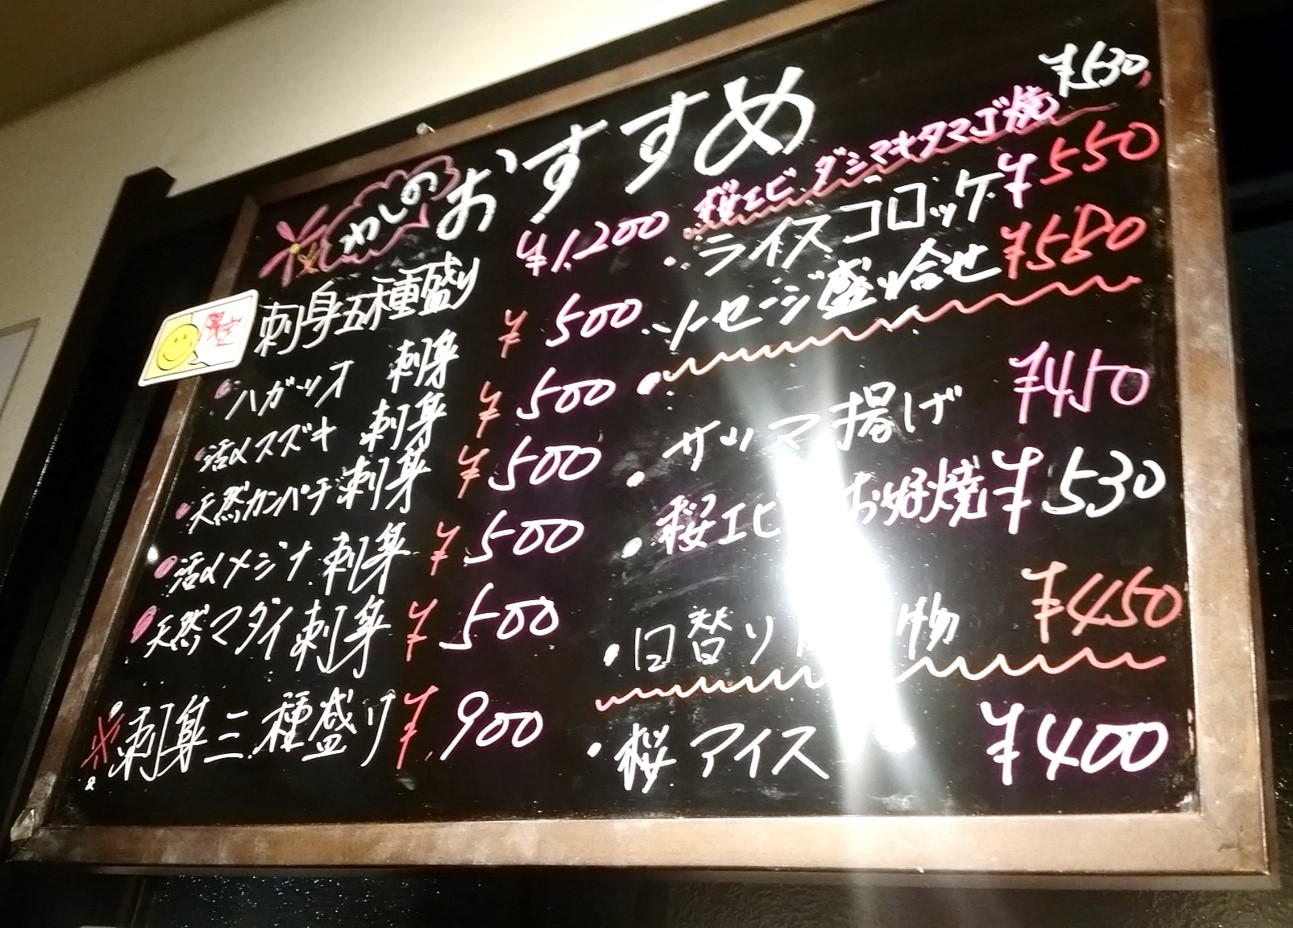 おすすめ
限定
刺身五種盛り ¥1,200
・ハガツオ 刺身 ¥500
・活〆スズキ 刺身 ¥500
・天然カンパチ刺身 ¥500
・活〆メジナ 刺身 ¥500
・天然マダイ刺身 ¥500
※刺身三種盛り ¥900
桜エビ ダシマキタマゴ焼 ¥530
・ライスコロッケ ¥550
・ソーセージ盛り合せ ¥580
・サツマ揚げ ¥450
・桜エビ お好焼 ¥530
・日替り 物 ¥450
・桜アイス ¥400